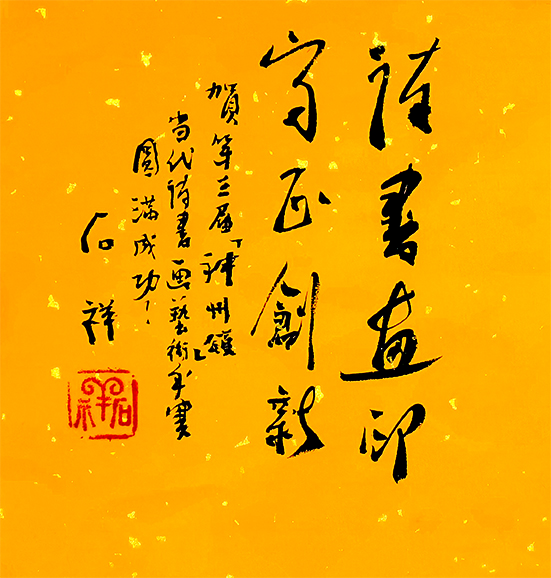 詩書畫印
守正創新
賀第三届「神州
当代詩書画藝術」年
圓滿成功！
石祥
石祥